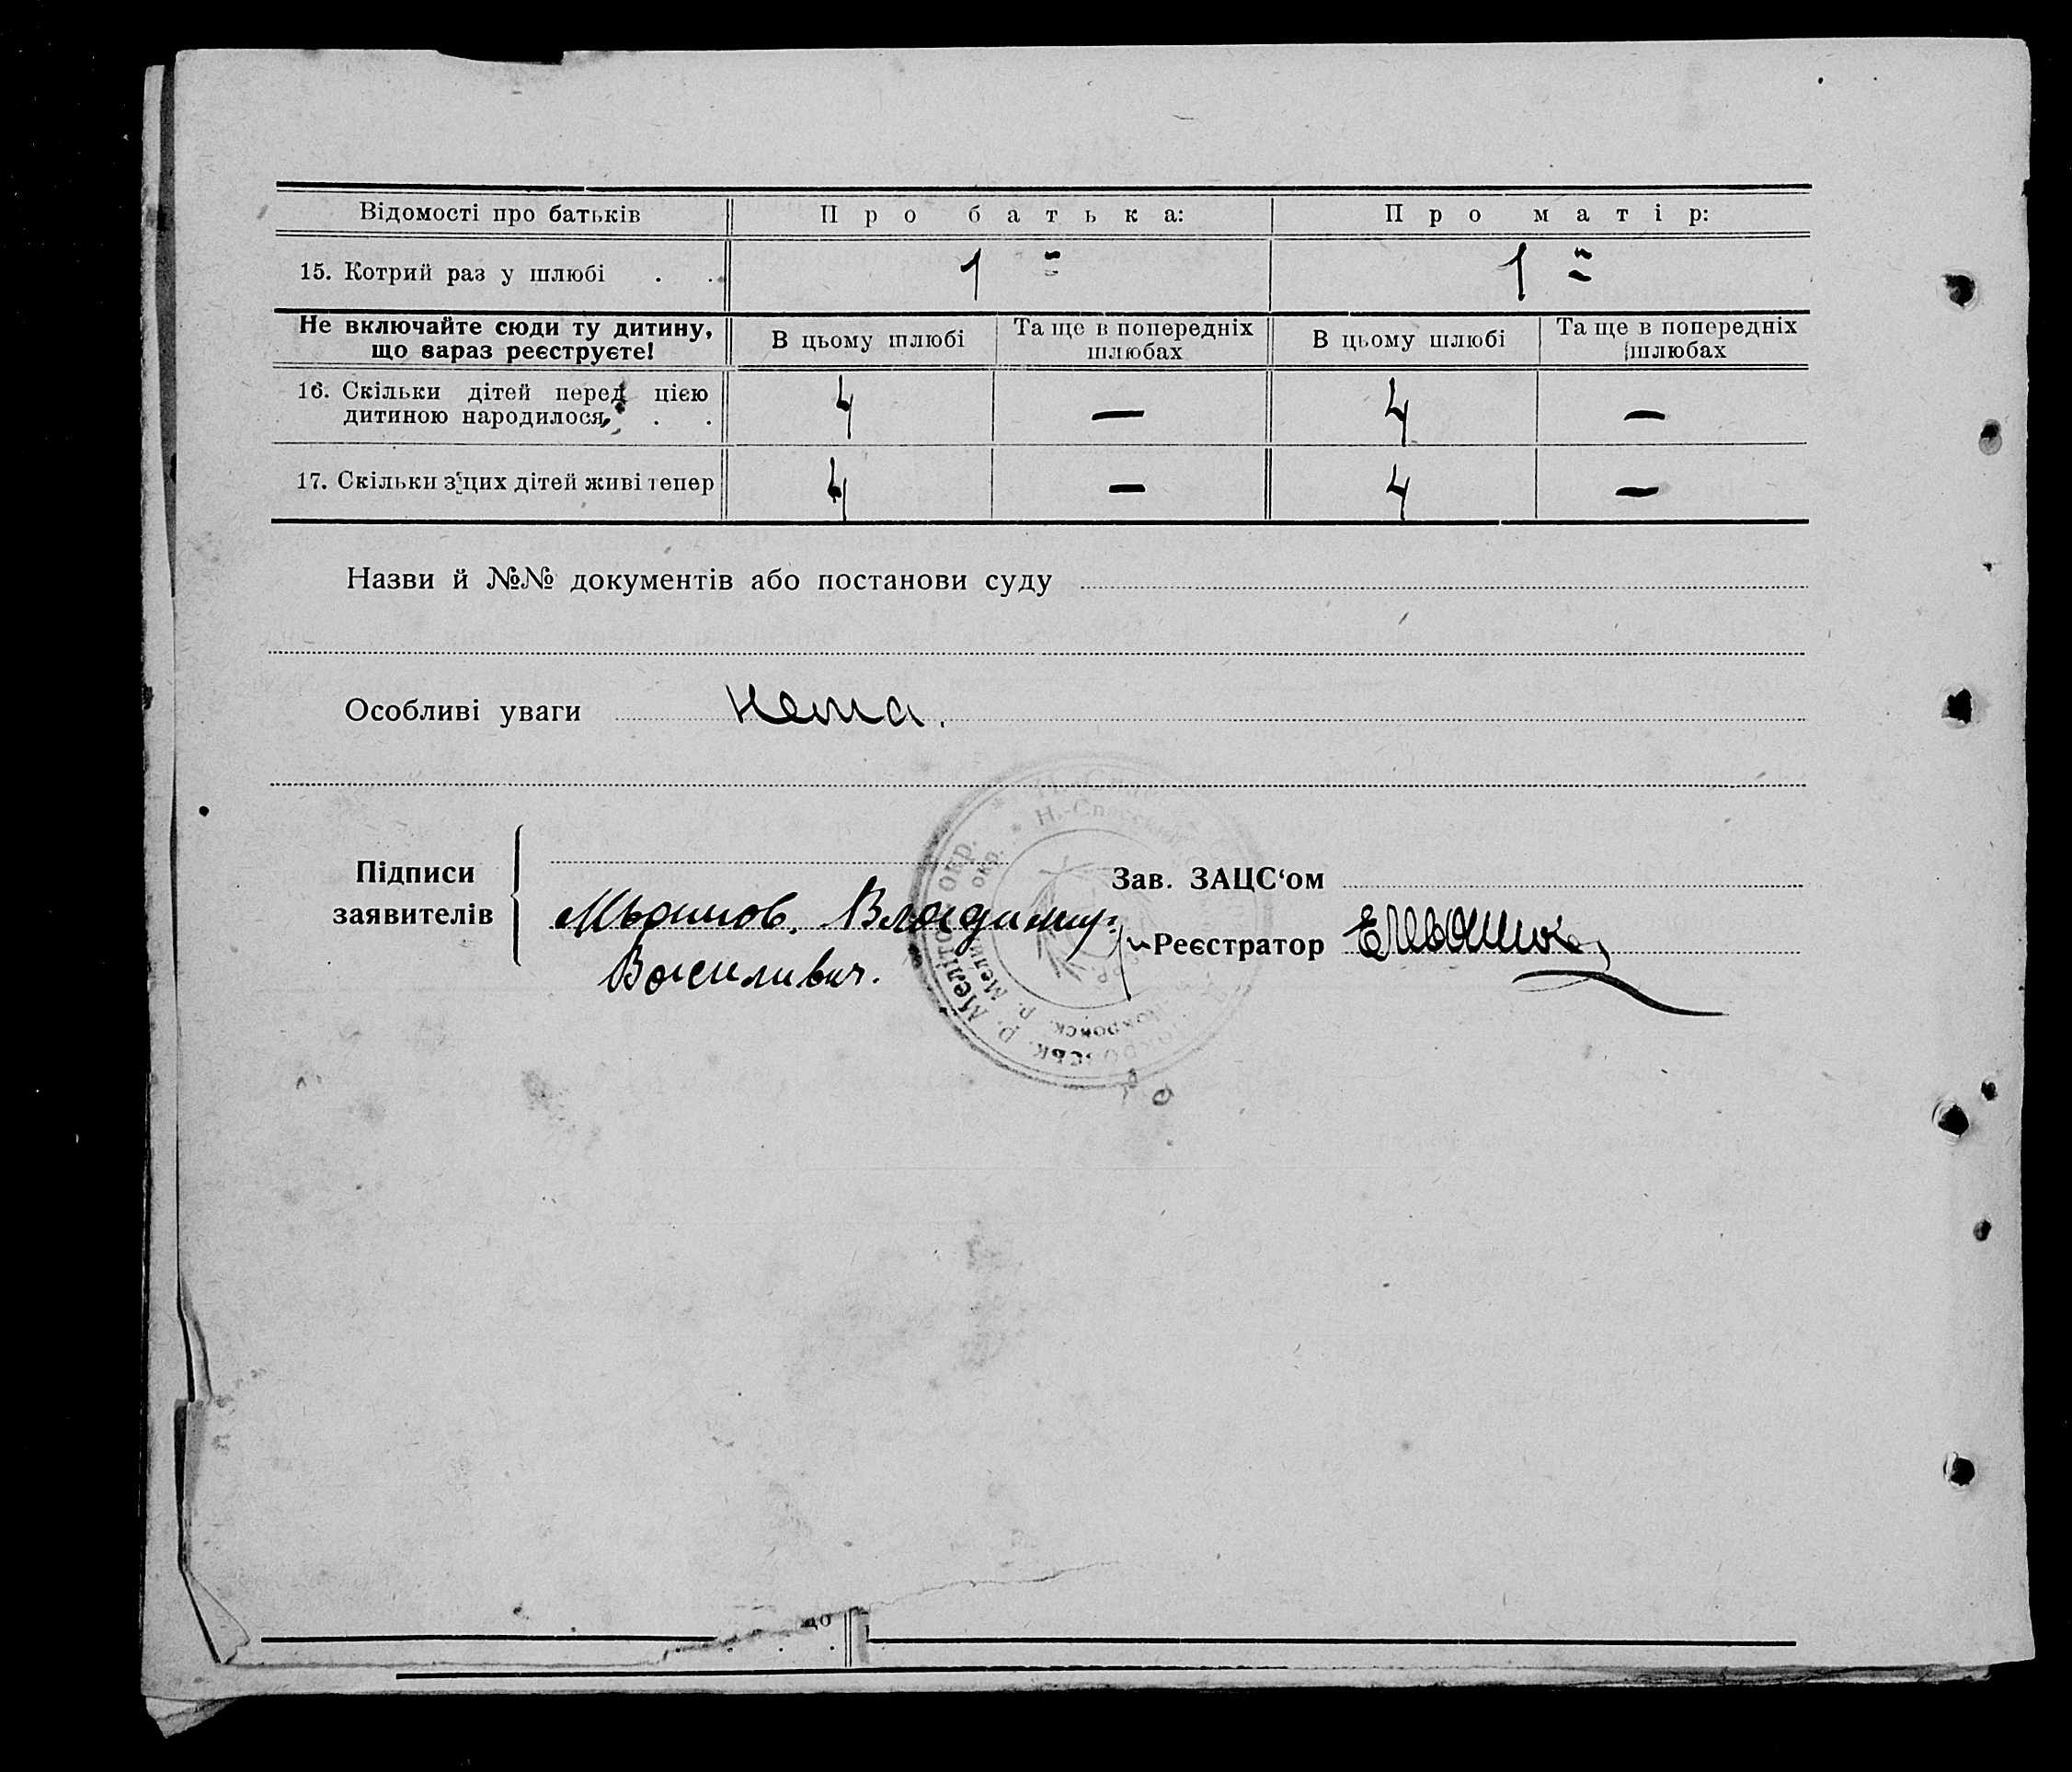 Відомості про батьків Про батька: Про матір:
15. Котрий раз у шлюбі . . 1 = 1 =
Не включайте сюди ту дитину, що зараз реєструєте! В цьому шлюбі Та ще в попередніх шлюбах В цьому шлюбі Та ще в попередніх шлюбах
16. Скільки дітей перед цією
дитиною народилося . . 4 — 4 —
17. Скільки з цих дітей живі тепер 4 — 4 —
Назви й №№ документів або постанови суду
Особливі уваги нема.
Підписи
заявителів
Владимир
Василивич.
Зав. ЗАЦС‘ом
Реєстратор
Н.-Спасский
р. Меліто окр.
р. Мелит окр.
до